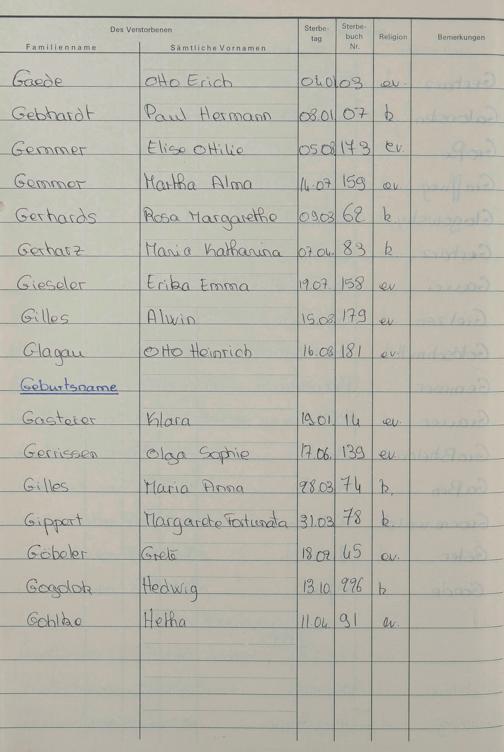 Des Verstorbenen Sterbe- tag Sterbe- buch Nr. Religion Bemerkungen
Familienname Sämtliche Vornamen
Gaede Otto Erich 04.01 03 ev.
Gebhardt Paul Hermann 08.01 07 k
Gemmer Elise Ottilie 05.08 173 ev.
Gemmer Martha Alma 14.07 159 ev
Gerhards Rosa Margarethe 09.03 62 k
Gerharz Maria Katharina 07.04. 83 k
Gieseler Erika Emma 19.07. 158 ev
Gilles Alwin 15.08 179 ev
Glagau Otto Heinrich 16.08 181 ev.
Geburtsname
Gasteier Klara 19.01. 14 ev.
Gerrissen Olga Sophie 17.06. 139 ev.
Gilles Maria Anna 28.03 74 k.
Gippert Margarete Fortunata 31.03 78 k.
Göbeler Grete 18.02 45 ev.
Hedwig 13.10. 226 k
Gohlke 11.04. 91 ev.